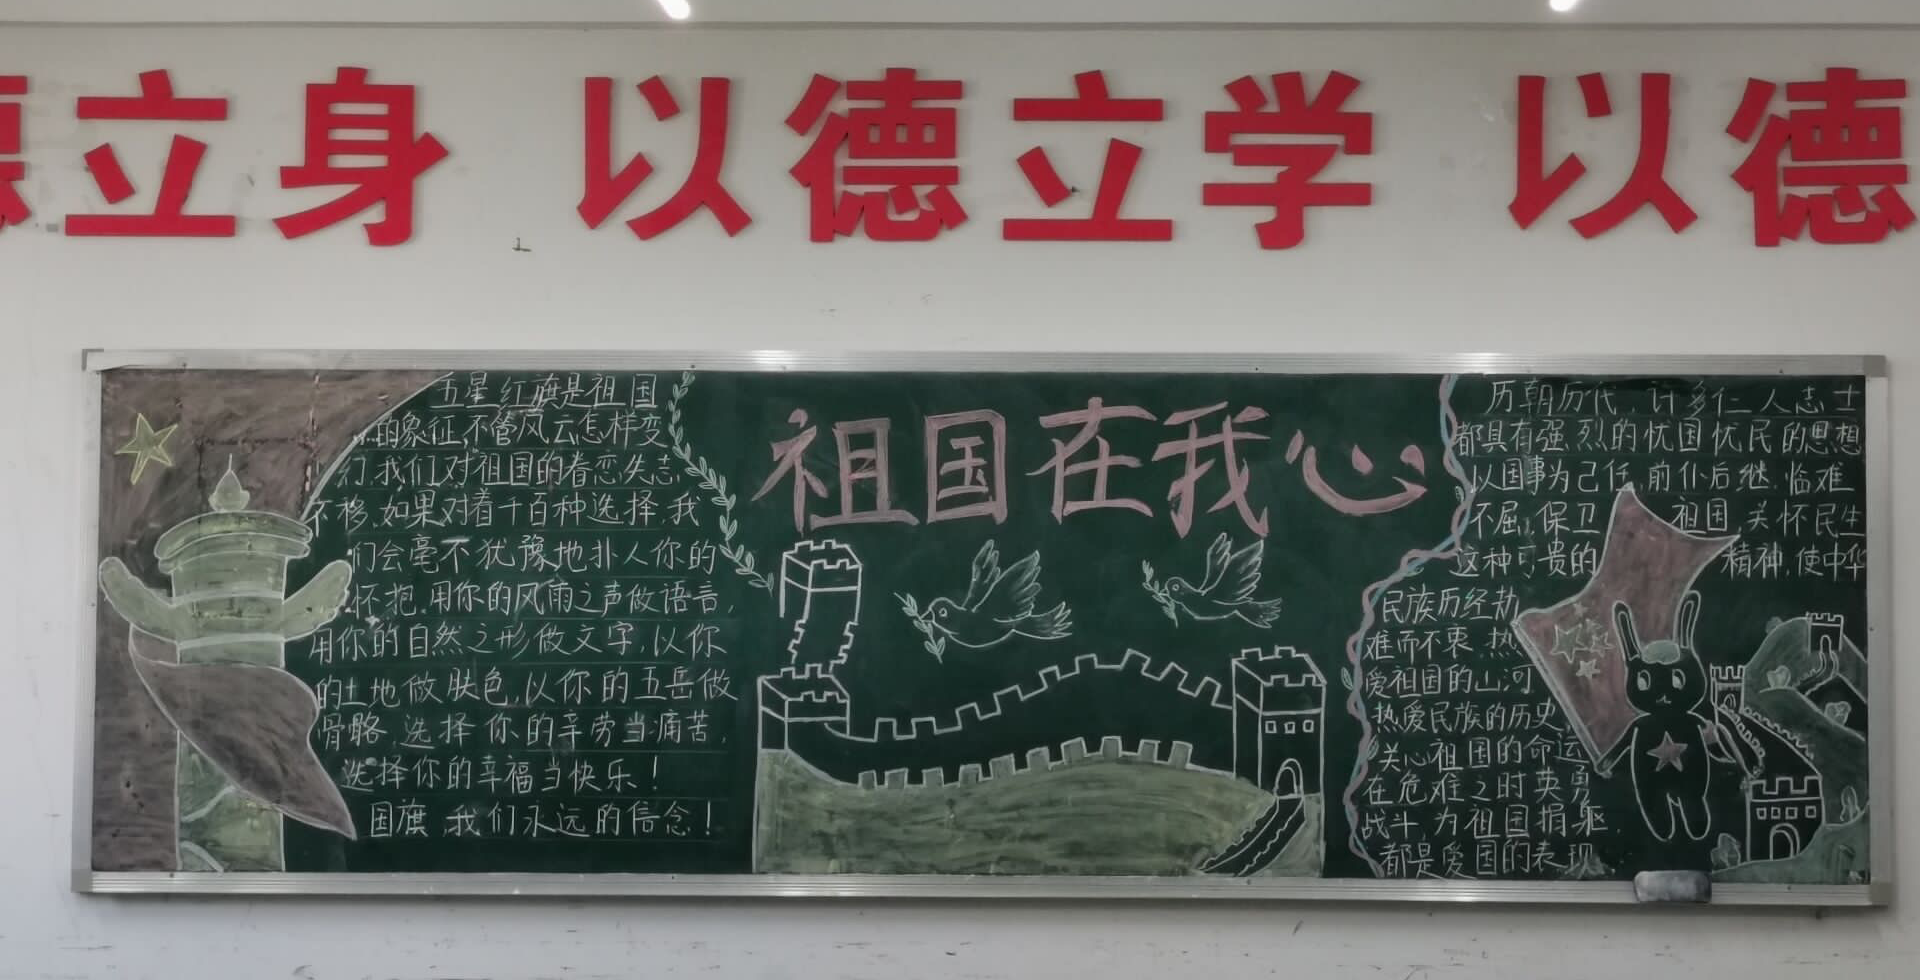 德立身 以德立学 以德
祖国在我心
五星红旗是祖国
的象征,不管风云怎样变
幻,我们对祖国的眷恋矢志
不移,如果对着千百种选择,我
们会毫不犹豫地扑人你的
怀抱,用你的风雨之声做语言,
用你的自然之形做文字,以你
的土地做肤色,以你的五岳做
骨骼,选择你的辛劳当痛苦,
选择你的幸福当快乐!
国旗,我们永远的信念!
历朝历代,许多仁人志士
都具有强烈的忧国忧民的思想
以国事为己任,前仆后继,临难
不屈,保卫祖国,关怀民生
这种可贵的精神,使中华
民族历经劫
难而不衷,热
爱祖国的山河
热爱民族的历史,
关心祖国的命运
在危难之时英勇
战斗,为祖国捐躯,
都是爱国的表现.